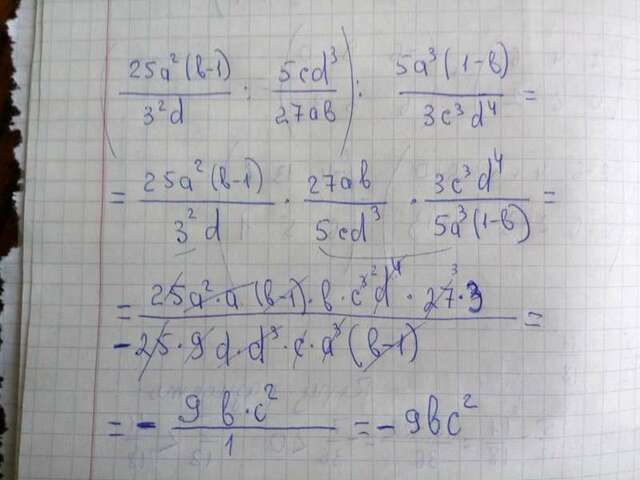 (25a²(b-1)/3²d : 5cd³/27ab) : 5a³(1-b)/3c³d⁴ =
= 25a²(b-1)/3²d · 27ab/5cd³ · 3c³d⁴/5a³(1-b) =
= 25a²·a(b-1)·b·c³²d⁴·27³·3/-25·9d·d³·c·a³(b-1) =
= - 9b·c²/1 = -9bc²